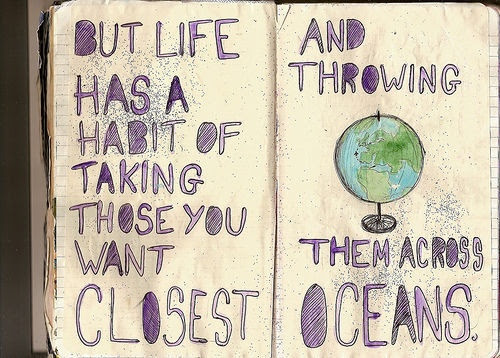 BUT LIFE
HAS A
HABIT OF
TAKING
THOSE YOU
WANT
CLOSEST
AND
THROWING
THEM ACROSS
OCEANS.